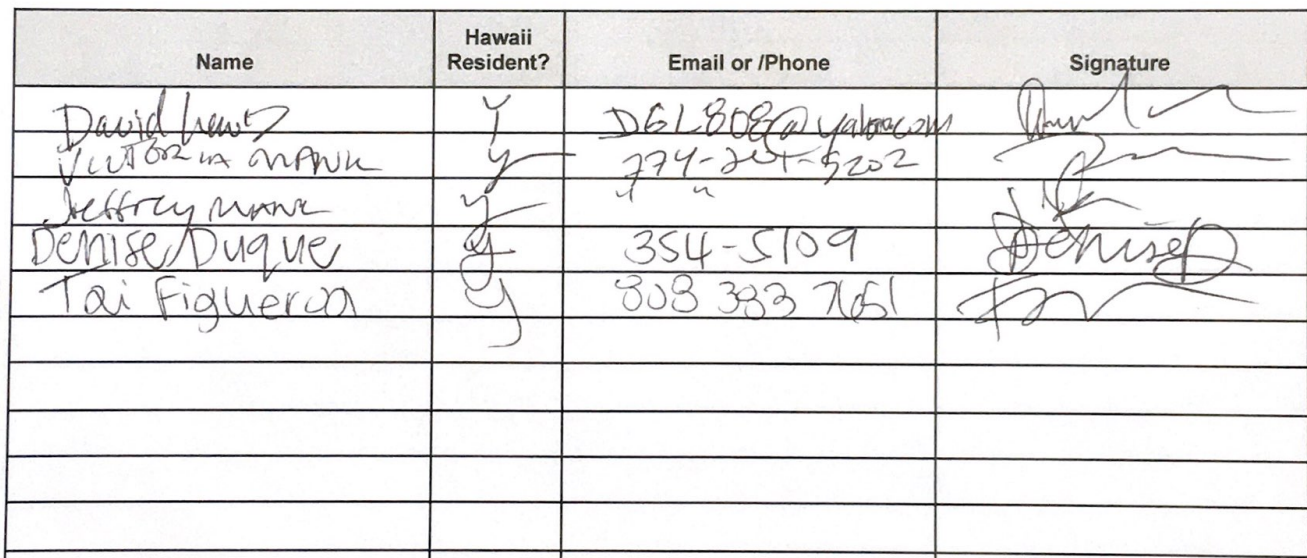 Name Hawaii Resident? Email or /Phone Signature
David Lewis Y DGL808@yahoo.com
Victoria MANK y
Jeffrey MANK y " "
Denise Duque y 354-5109 Denise D
Tai Figueroa y 808 383 7651